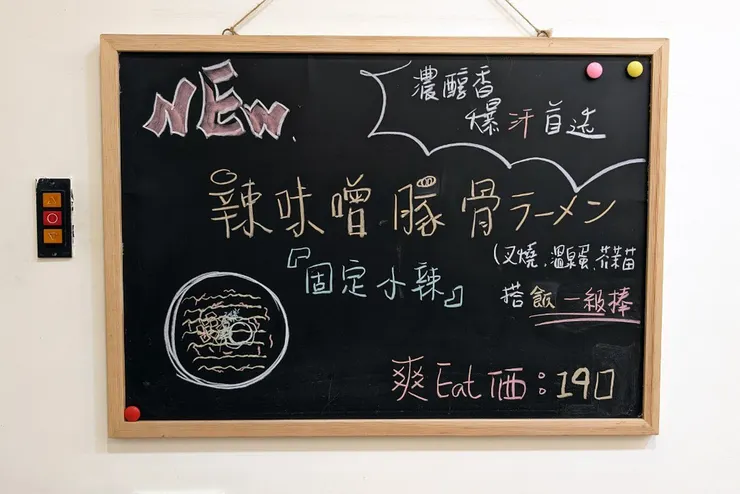 NEW.
濃醇香
爆汗首选
辣味噌豚骨ラーメン
『固定小辣』
(叉燒、溫泉蛋、芥茉苗
搭飯一級棒
爽Eat価:190